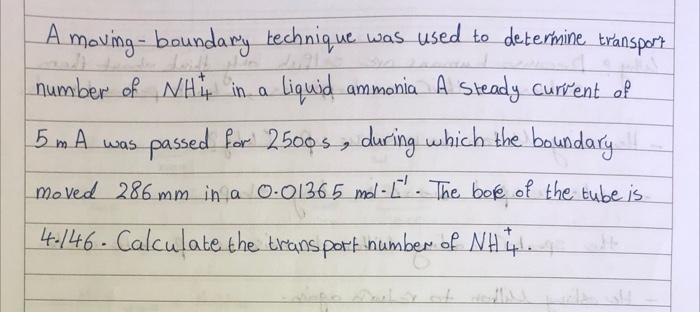 A moving-boundary technique was used to determine transport
number of NH₄⁺ in a liquid ammonia A steady current of
5 mA was passed for 2500 s, during which the boundary
moved 286 mm in a 0.01365 mol-L⁻¹. The bore of the tube is
4.146. Calculate the transport number of NH₄⁺.